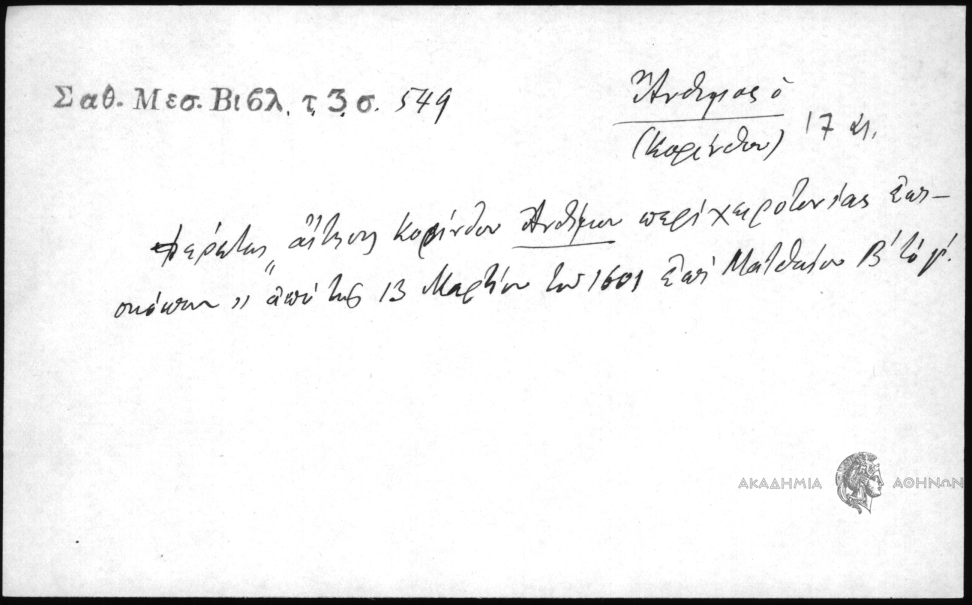 Σαθ. Μεσ. Βιβλ. τ. 3. σ. 549
Ἄνθιμος ὁ
(Κορίνθου) 17 αι.
Φέρεται „ αἴτησις Κορίνθου Ἀνθίμου περὶ χειροτονίας ἐπι-
σκόπου „ ἀπὸ τῆς 13 Μαρτίου τοῦ 1601 ἐπὶ Ματθαίου Β' τὸ γ'.
ΑΚΑΔΗΜΙΑ ΑΘΗΝΩΝ